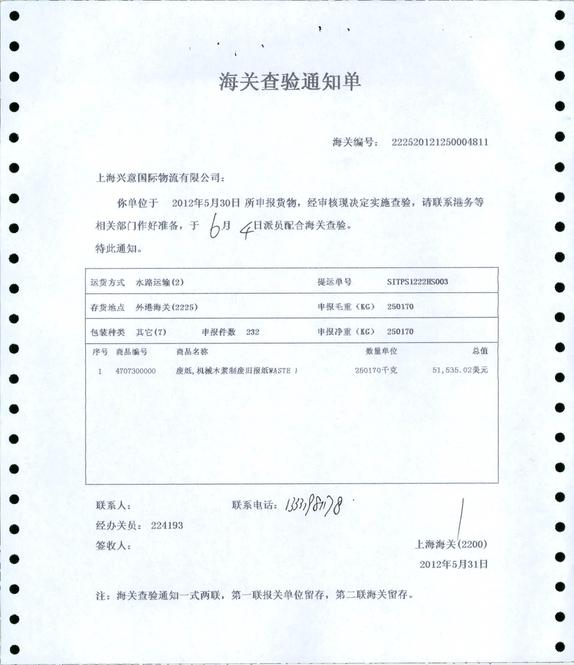 海关查验通知单
海关编号： 222520121250004811
上海兴意国际物流有限公司：
你单位于 2012年5月30日 所申报货物，经审核现决定实施查验，请联系港务等
相关部门作好准备，于 6月 4日派员配合海关查验。
特此通知。
运货方式 水路运输(2) 提运单号 SITPS1222HS003
存货地点 外港海关(2225) 申报毛重（KG） 250170
包装种类 其它(7) 申报件数 232 申报净重（KG） 250170
序号 商品编号 商品名称 数量单位 总值
1 4707300000 废纸,机械木浆制废旧报纸WASTE 250170千克 51,535.02美元
联系人： 联系电话：
经办关员： 224193
签收人： 上海海关(2200)
2012年5月31日
注：海关查验通知一式两联，第一联报关单位留存，第二联海关留存。